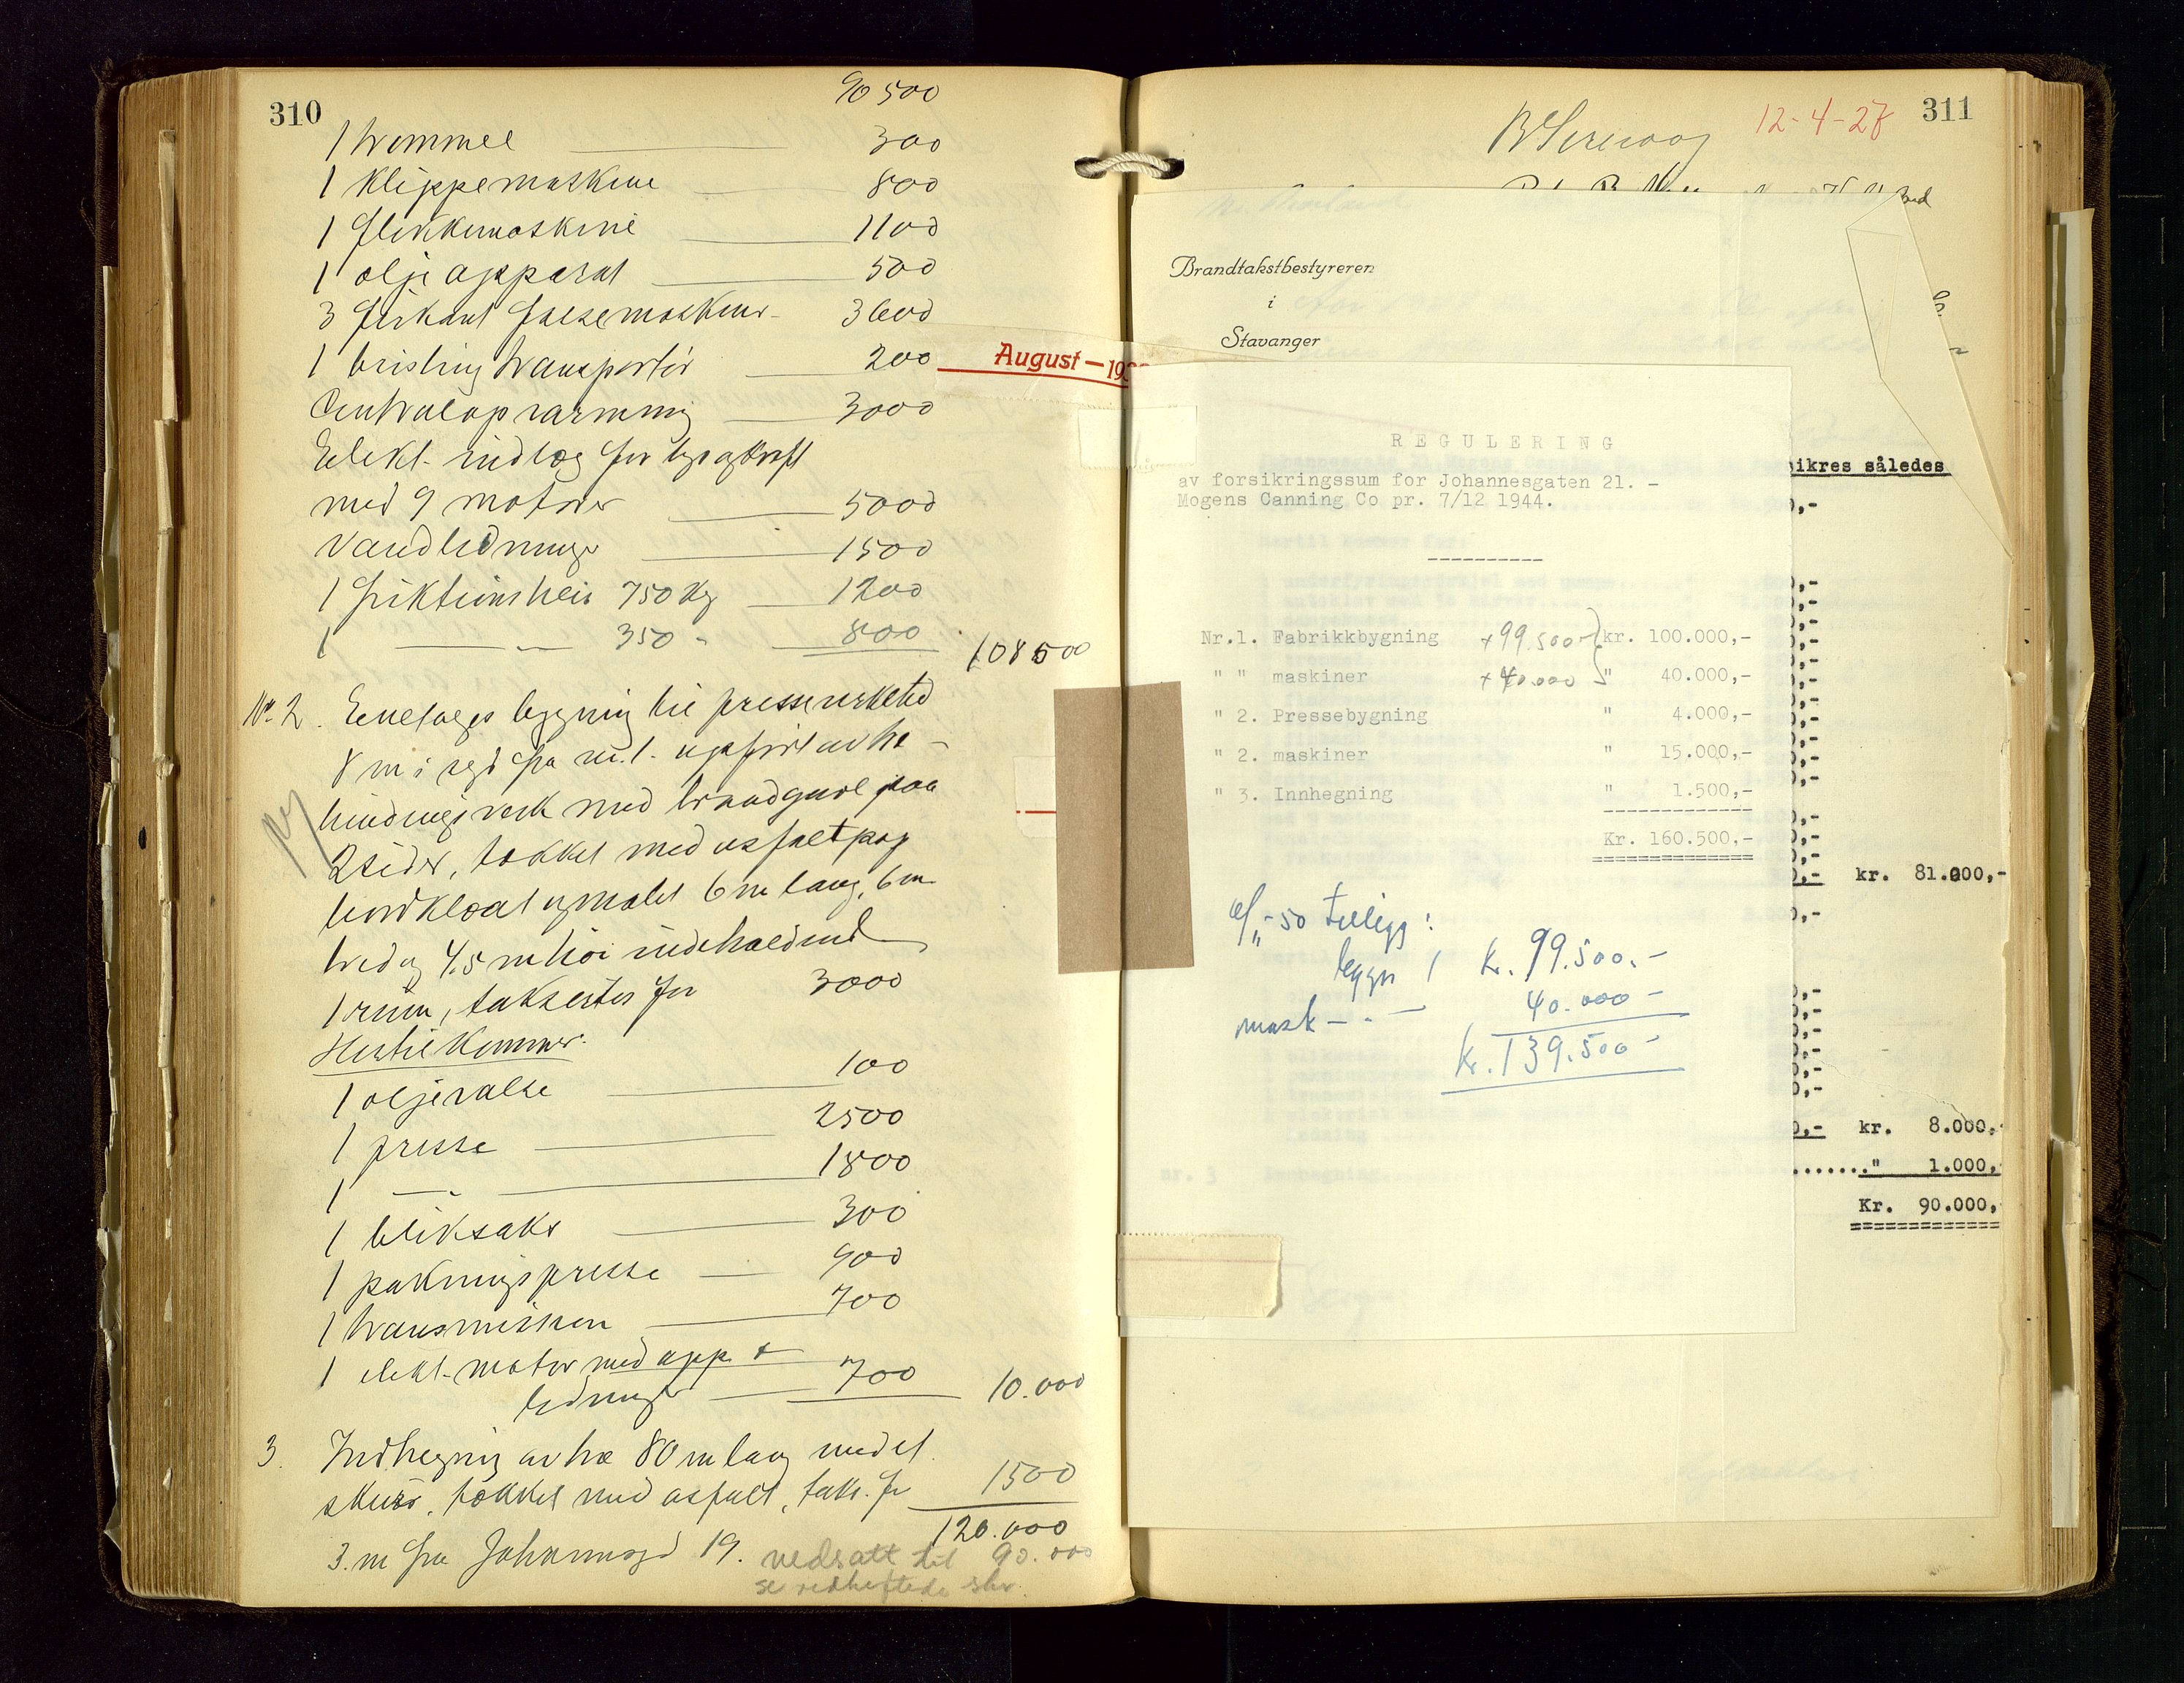 310
90 500
1 trommel 300
1 Klippemaskine 800
1 flikkemaskine 1100
1 olje apparat 500
3 firkant falsemaskiner 3600
1 brisling transportør 200
August – 19
Centralopvarming 3000
Elekt. indlæg for lys og kraft
med 9 motorer 5000
Vandledninger 1500
1 friktionsheis 750 kg 1200
1 — " — 350 " 800
108500
No. 2. Enetages bygning til presseverksted
8 m i syd fra nr. 1. opført av tre-
bindingsverk med brandgavl paa
2 sider, tækket med asfaltpap
bordklædt og malet 6 m lang, 6 m
bred og 4,5 m høi indeholdende
1 rum, takseres for 3000
Hertil kommer:
1 oljevalse 100
1 presse 2500
1 — " — 1800
1 bliksaks 300
1 pakningspresse 900
1 transmission 700
1 elekt. motor med app. &
ledninger 700
10.000
3. Indhegning av træ 80 m lang med et
skur, tækket med asfalt, taks. for 1500
120.000
3 m fra Johannesgd 19. nedsatt til 90.000
se vedheftede skr.
311
12-4-27
Brandtakstbestyreren
i
Stavanger
REGULERING
av forsikringssum for Johannesgaten 21. -
Mogens Canning Co pr. 7/12 1944.
Nr.1. Fabrikkbygning + 99.500- kr. 100.000,-
" " maskiner + 40.000 " 40.000,-
" 2. Pressebygning " 4.000,-
" 2. maskiner " 15.000,-
" 3. Innhegning " 1.500,-
Kr. 160.500,-
50 tillegg:
bygn 1 kr. 99.500.-
mask - " - 40.000 -
kr. 139.500 -
ikres således
kr. 81.000,-
kr. 8.000,
......." 1.000,
Kr. 90.000,
nr. 3 Innhegning